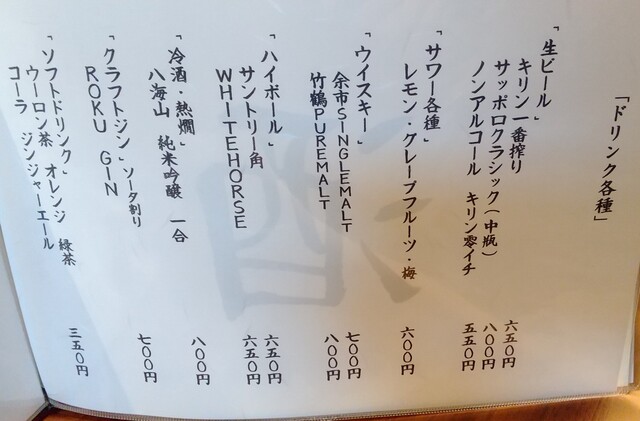 「ドリンク各種」
「生ビール」
キリン一番搾り 六五〇円
サッポロクラシック(中瓶) 八〇〇円
ノンアルコール キリン零イチ 五五〇円
「サワー各種」
レモン・グレープフルーツ・梅 六〇〇円
「ウイスキー」
余市SINGLEMALT 七〇〇円
竹鶴PUREMALT 八〇〇円
「ハイボール」
サントリー角 六五〇円
WHITEHORSE 六五〇円
「冷酒・熱燗」
八海山 純米吟醸 一合 八〇〇円
「クラフトジン」ソーダ割り
ROKU GIN 七〇〇円
「ソフトドリンク」
ウーロン茶 オレンジ 緑茶
コーラ ジンジャーエール 三五〇円